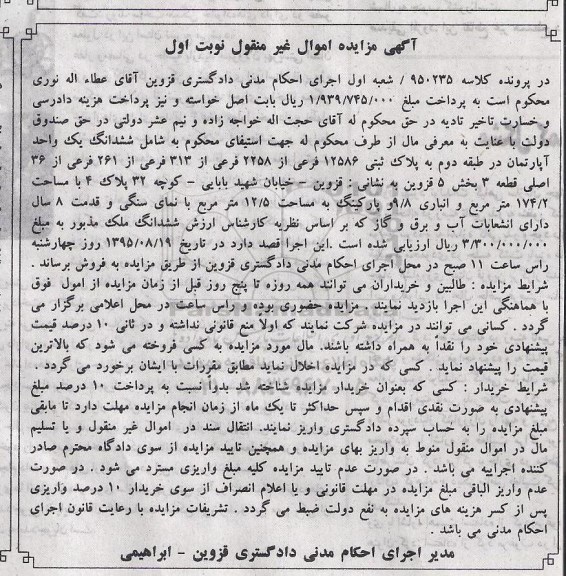 آگهی مزایده اموال غیر منقول نوبت اول
در پرونده کلاسه ۹۵۰۲۳۵ / شعبه اول اجرای احکام مدنی دادگستری قزوین آقای عطاء اله نوری
محکوم است به پرداخت مبلغ ۱/۹۳۹/۷۴۵/۰۰۰ ریال بابت اصل خواسته و نیز پرداخت هزینه دادرسی
و خسارت تاخیر تادیه در حق محکوم له آقای حجت اله خواجه زاده و نیم عشر دولتی در حق صندوق
دولت با عنایت به معرفی مال از طرف محکوم له جهت استیفای محکوم به شامل ششدانگ یک واحد
آپارتمان در طبقه دوم به پلاک ثبتی ۱۲۵۸۶ فرعی از ۲۲۵۸ فرعی از ۳۱۳ فرعی از ۲۶۱ فرعی از ۳۶
اصلی قطعه ۳ بخش ۵ قزوین به نشانی : قزوین – خیابان شهید بابایی – کوچه ۳۲ پلاک ۴ با مساحت
۱۷۴/۲ متر مربع و انباری ۹/۸و پارکینگ به مساحت ۱۲/۵ متر مربع با نمای سنگی و قدمت ۸ سال
دارای انشعابات آب و برق و گاز که بر اساس نظریه کارشناس ارزش ششدانگ ملک مذبور به مبلغ
۳/۳۰۰/۰۰۰/۰۰۰ ریال ارزیابی شده است .این اجرا قصد دارد در تاریخ ۱۳۹۵/۰۸/۱۹ روز چهارشنبه
راس ساعت ۱۱ صبح در محل اجرای احکام مدنی دادگستری قزوین از طریق مزایده به فروش برساند .
شرایط مزایده : طالبین و خریداران می توانند همه روزه تا پنج روز قبل از زمان مزایده از امول فوق
با هماهنگی این اجرا بازدید نمایند . مزایده حضوری بوده و راس ساعت در محل اعلامی برگزار می
گردد . کسانی می توانند در مزایده شرکت نمایند که اولا منع قانونی نداشته و در ثانی ۱۰ درصد قیمت
پیشنهادی خود را نقداً به همراه داشته باشند. مال مورد مزایده به کسی فروخته می شود که بالاترین
قیمت را پیشنهاد نماید . کسی که در مزایده اخلال نماید مطابق مقررات با ایشان برخورد می گردد .
شرایط خریدار : کسی که بعنوان خریدار مزایده شناخته شد بدواً نسبت به پرداخت ۱۰ درصد مبلغ
پیشنهادی به صورت نقدی اقدام و سپس حداکثر تا یک ماه از زمان انجام مزایده مهلت دارد تا مابقی
مبلغ مزایده را به حساب سپرده دادگستری واریز نمایند. انتقال سند در اموال غیر منقول و یا تسلیم
مال در اموال منقول منوط به واریز بهای مزایده و همچنین تایید مزایده از سوی دادگاه محترم صادر
کننده اجراییه می باشد . در صورت عدم تایید مزایده کلیه مبلغ واریزی مسترد می شود . در صورت
عدم واریز الباقی مبلغ مزایده در مهلت قانونی و یا اعلام انصراف از سوی خریدار ۱۰ درصد واریزی
پس از کسر هزینه های مزایده به نفع دولت ضبط می گردد . تشریفات مزایده با رعایت قانون اجرای
احکام مدنی می باشد
مدیر اجرای احکام مدنی دادگستری قزوین – ابراهیمی